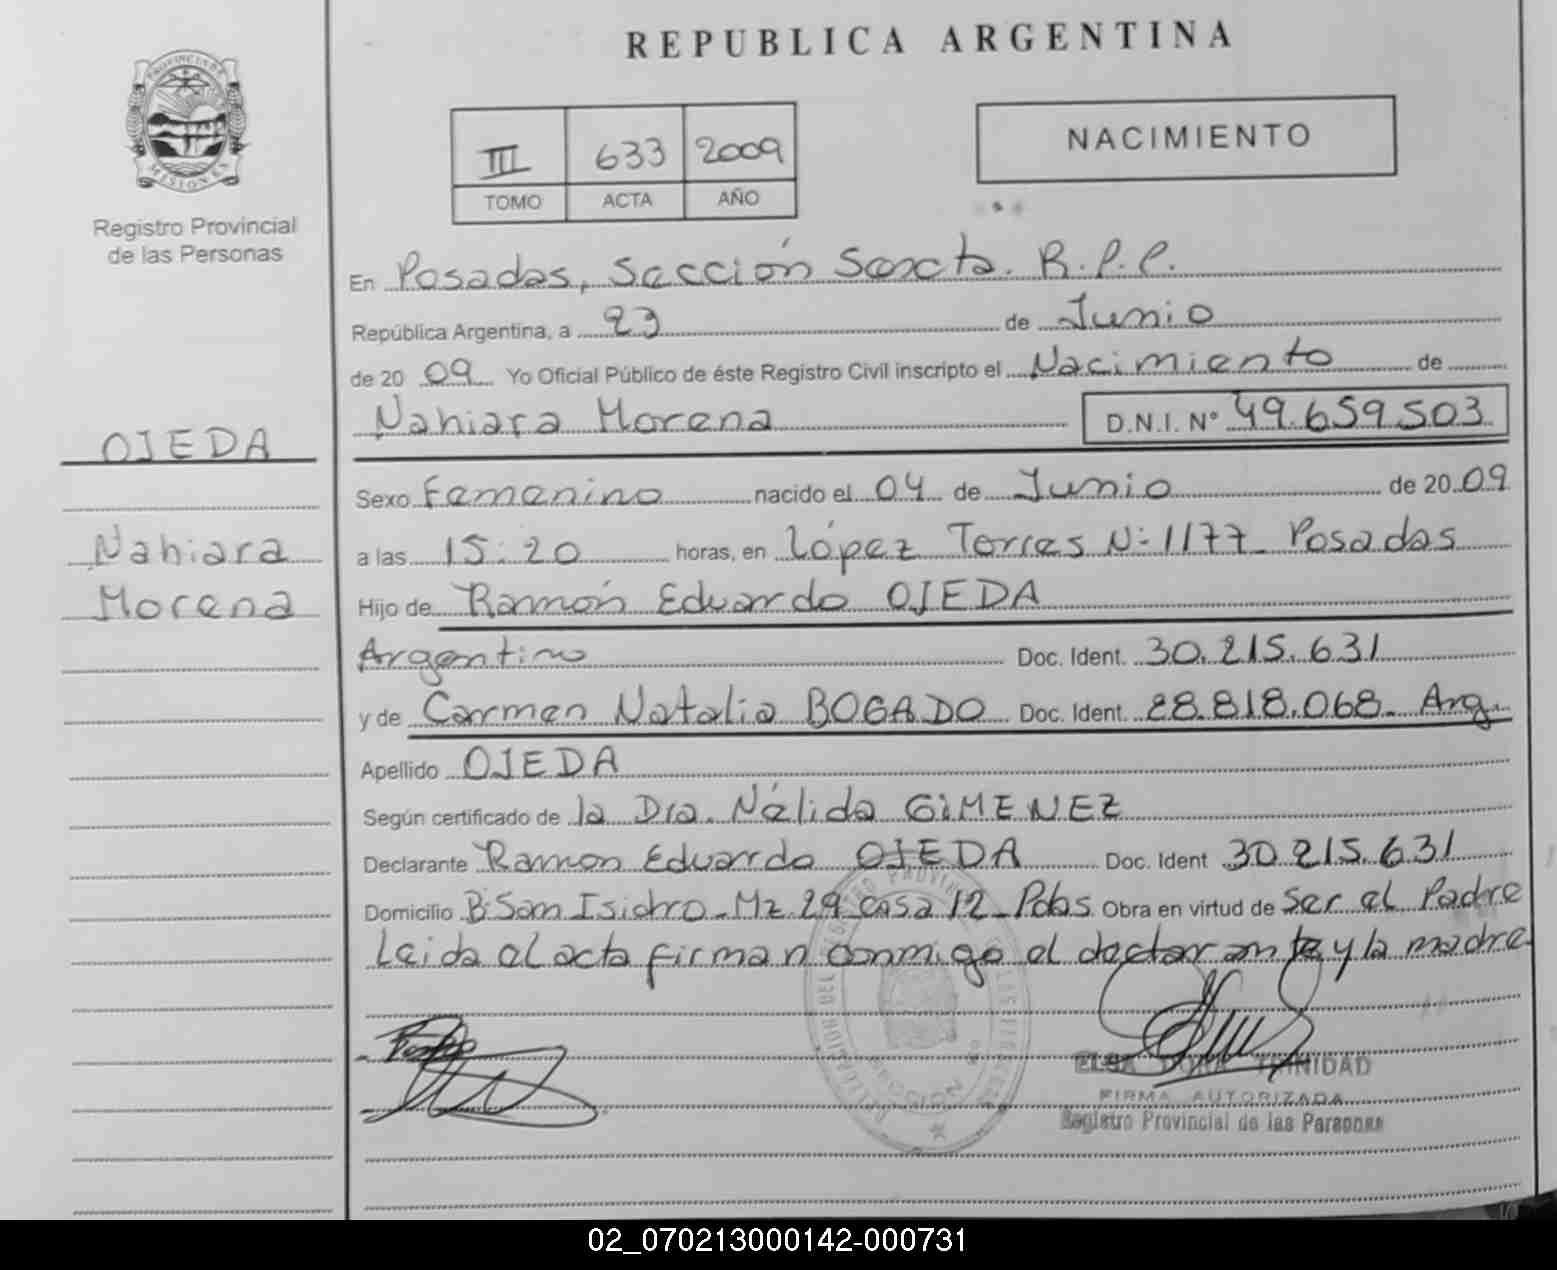 REPUBLICA ARGENTINA
PROVINCIA DE
MISIONES
Registro Provincial
de las Personas
III 633 2009
TOMO ACTA AÑO
NACIMIENTO
En Posadas, Sección Sexcta. R.P.P.
República Argentina, a 23 de Junio
de 20 09 Yo Oficial Público de éste Registro Civil inscripto el Nacimiento de
Nahiara Morena D.N.I. Nº 49.659.503
OJEDA
Nahiara
Morena
Sexo Femenino nacido el 04 de Junio de 20 09
a las 15:20 horas, en López Torres N: 1177 Posadas
Hijo de Ramón Eduardo OJEDA
Argentino Doc. Ident. 30.215.631
y de Carmen Natalia BOGADO Doc. Ident. 28.818.068- Arg.
Apellido OJEDA
Según certificado de la Dra. Nélida GIMENEZ
Declarante Ramon Eduardo OJEDA Doc. Ident 30.215.631
Domicilio B: San Isidro - Mz 29 casa 12 - Pdas Obra en virtud de Ser el Padre
Leida el acta firman conmigo el declarante y la madre
ELSA DORA TRINIDAD
FIRMA AUTORIZADA
Registro Provincial de las Personas
02_070213000142-000731